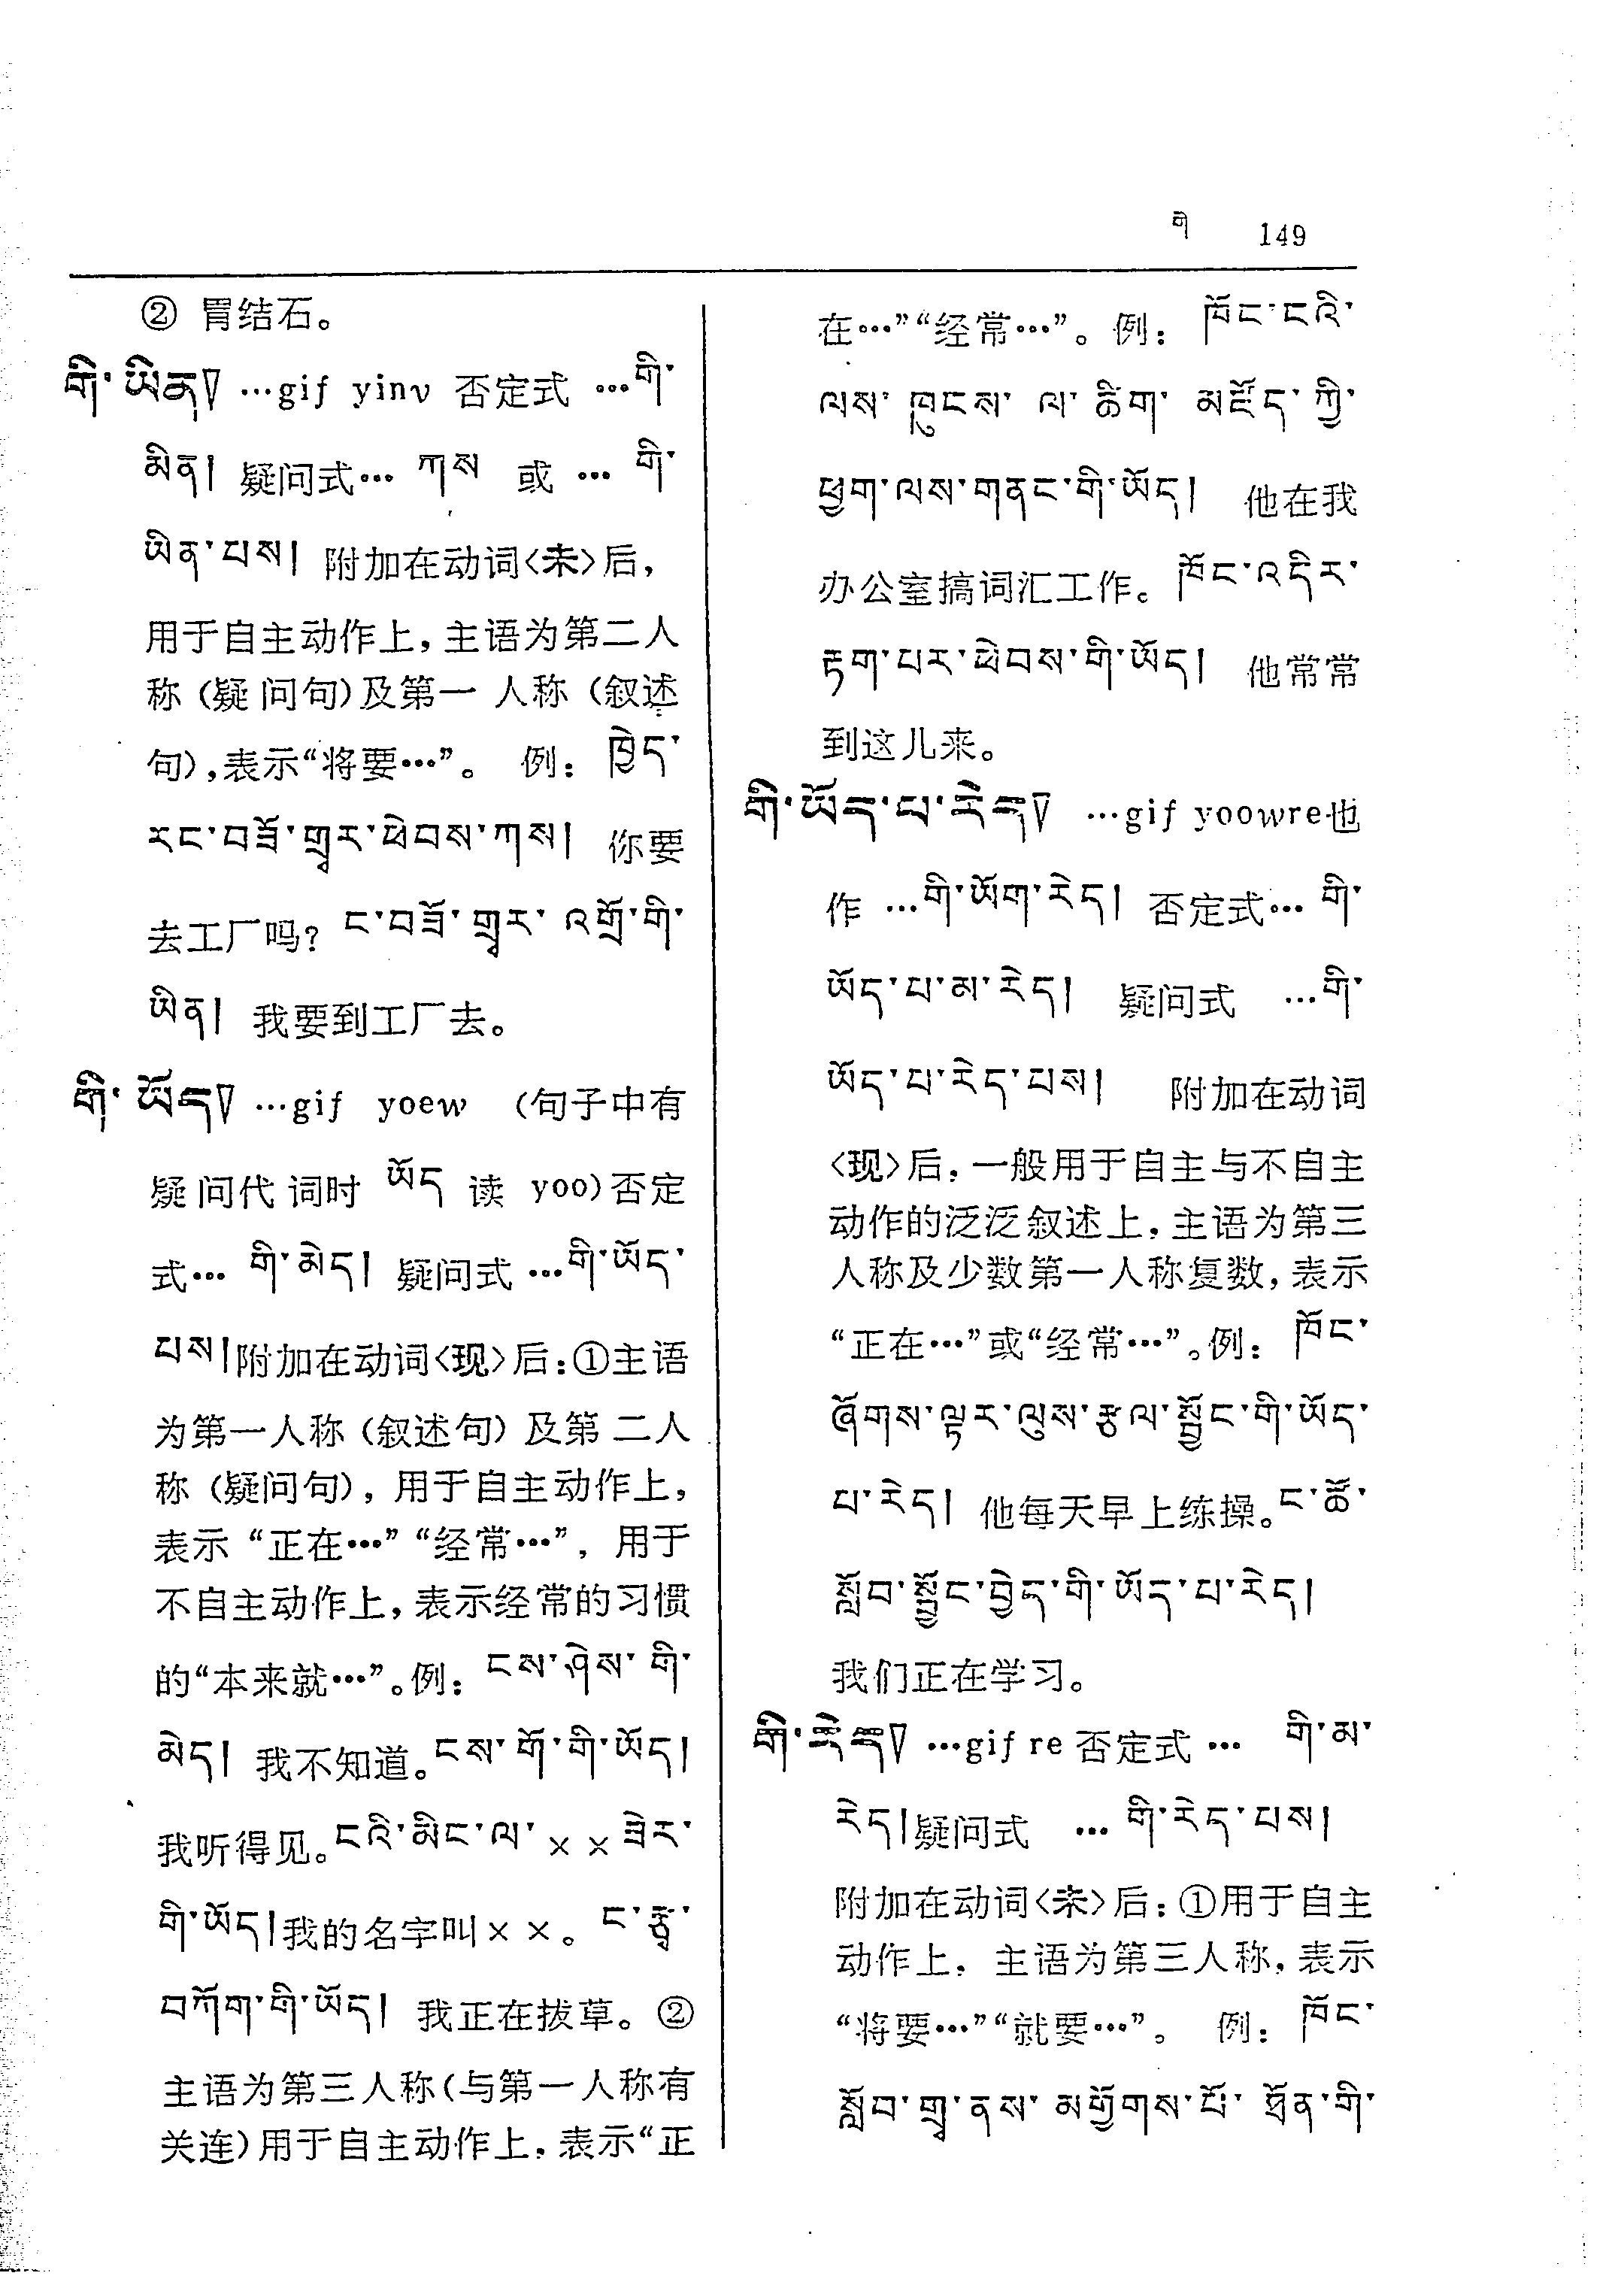 གི 149
② 胃结石。
གི་ ཡིན། …gif yinv 否定式 …གི་
མིན། 疑问式… ཀས 或 … གི་
ཡིན་པས། 附加在动词〈未〉后，
用于自主动作上，主语为第二人
称（疑问句）及第一人称（叙述
句），表示“将要…”。 例： ཁྱེད་
རང་བཟོ་གྲྭར་ཕེབས་ཀས། 你要
去工厂吗？ ང་བཟོ་གྲྭར་ འགྲོ་གི་
ཡིན། 我要到工厂去。
གི་ ཡོད། …gif yoew （句子中有
疑问代词时 ཡོད 读 yoo）否定
式… གི་མེད། 疑问式 …གི་ཡོད་
པས།附加在动词〈现〉后：①主语
为第一人称（叙述句）及第二人
称（疑问句），用于自主动作上，
表示“正在…”“经常…”，用于
不自主动作上，表示经常的习惯
的“本来就…”。例： ངས་ཤེས་ གི་
མེད། 我不知道。ངས་ གོ་གི་ཡོད།
我听得见。ངའི་མིང་ལ་××ཟེར་
གི་ཡོད།我的名字叫××。 ང་རྩྭ་
བཀོག་གི་ཡོད། 我正在拔草。②
主语为第三人称（与第一人称有
关连）用于自主动作上，表示“正
在…”“经常…”。例： ཁོང་ངའི་
ལས་ ཁུངས་ ལ་ ཚིག་ མཛོད་ ཀྱི་
ཕྱག་ལས་གནང་གི་ཡོད། 他在我
办公室搞词汇工作。ཁོང་འདིར་
རྟག་པར་ཕེབས་གི་ཡོད། 他常常
到这儿来。
གི་ཡོད་པ་རེད། …gif yoowre也
作 …གི་ཡོག་རེད། 否定式… གི་
ཡོད་པ་མ་རེད། 疑问式 …གི་
ཡོད་པ་རེད་པས། 附加在动词
〈现〉后，一般用于自主与不自主
动作的泛泛叙述上，主语为第三
人称及少数第一人称复数，表示
“正在…”或“经常…”。例： ཁོང་
ཞོགས་ལྟར་ལུས་རྩལ་སྦྱོང་གི་ཡོད་
པ་རེད། 他每天早上练操。ང་ཚོ་
སློབ་སྦྱོང་བྱེད་གི་ཡོད་པ་རེད།
我们正在学习。
གི་རེད། …gif re 否定式 … གི་མ་
རེད།疑问式 … གི་རེད་པས།
附加在动词〈未〉后：①用于自主
动作上，主语为第三人称，表示
“将要…”“就要…”。 例： ཁོང་
སློབ་གྲྭ་ནས་ མགྱོགས་པོ་ ཐོན་གི་